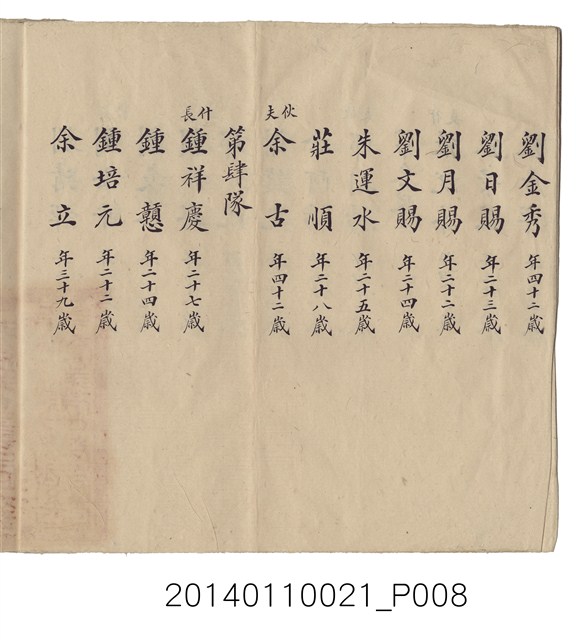 劉金秀 年四十二歲
劉日賜 年二十三歲
劉月賜 年二十二歲
劉文賜 年三十四歲
朱運水 年二十五歲
莊順 年二十八歲
伙夫 余古 年四十二歲
第肆隊
什長 鍾祥慶 年二十七歲
鍾戇 年二十四歲
鍾培元 年二十二歲
余立 年三十九歲
20140110021_P008